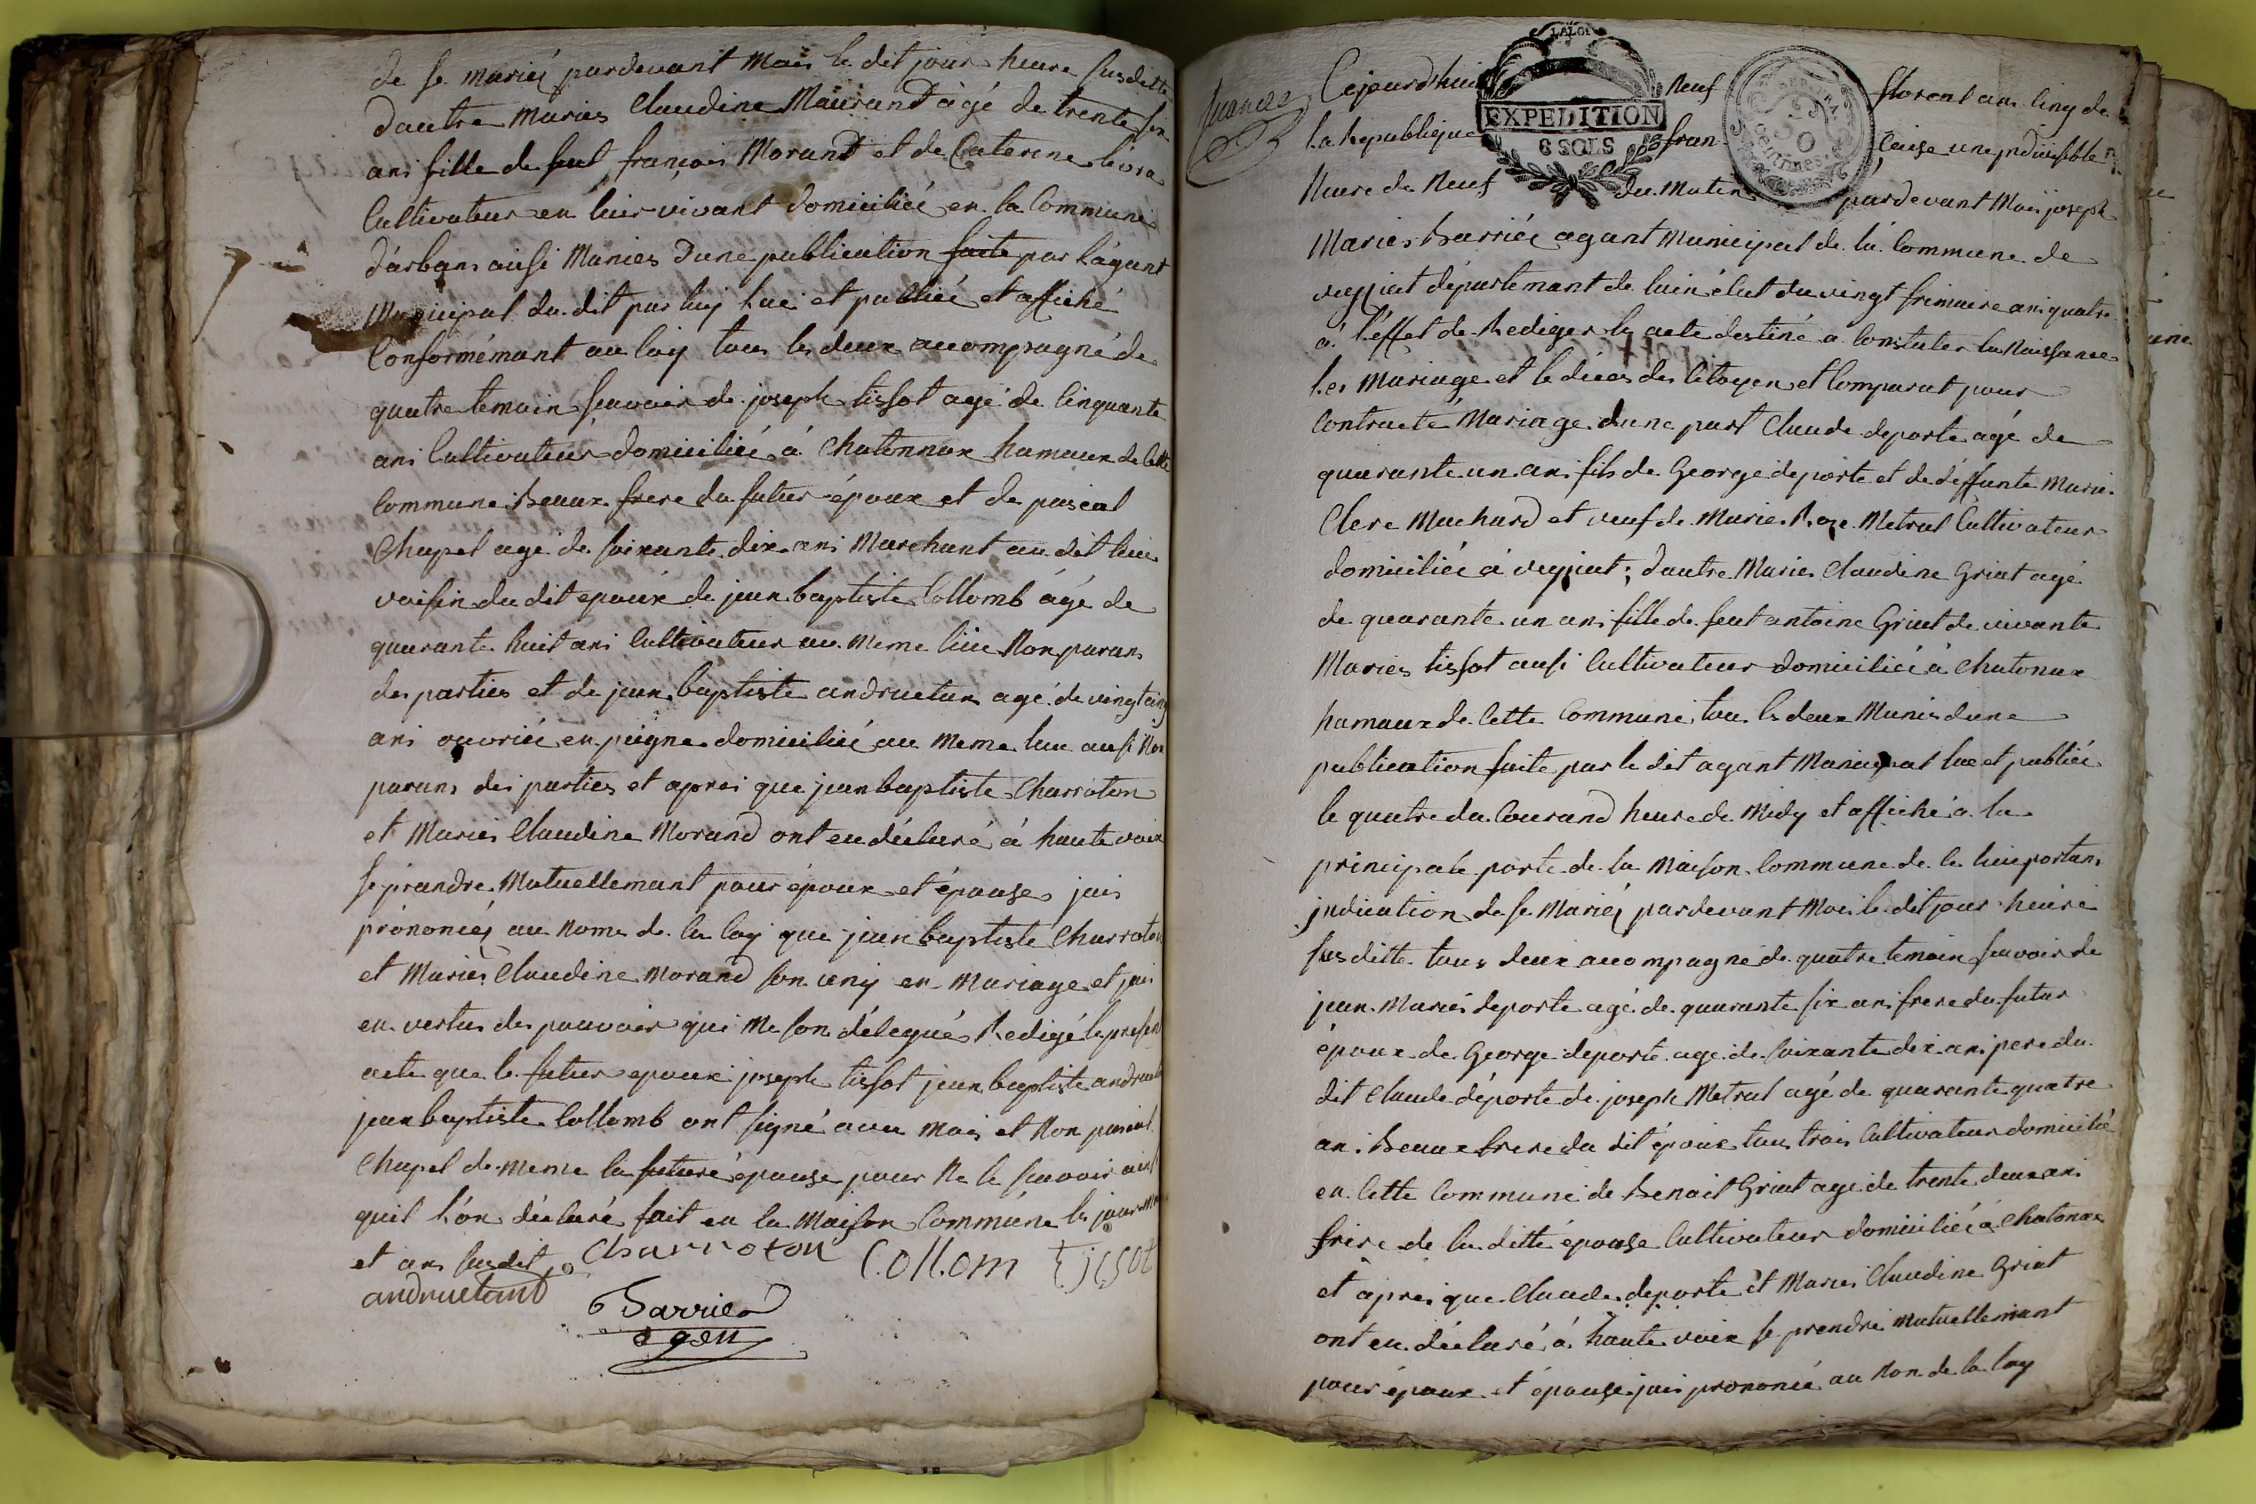 de se mariéj pardevant Moi le dit jour heure susditte
dautre Maries Claudine Maurand âgé de trente six
ans fille de feut françois Morand et de Caterine
Cultivateur en leur vivant domiciliée en la Commune
d'arbans aussi Munies d'une publication faite par l'agant
Municipal du dit par luy lue et publiée et affiché
Conformémant au loiy tous les deux acompagné de
quatre temoin scavoir de joseph tissot agé de Cinquante
ans Cultivateur domicilié à Chatonnax hamaux de Cette
Commune Beaux frere du futur époux et de pascal
Chapel agé de soixante dix ans Marchant au dit lieu
voisin du dit époux de jean baptiste Collomb âgé de
quarante huit ans Cultivateur au Meme lieu Non parans
des parties et de jean baptiste andruetan agé de vingt cinq
ans ouvrié en peigne domicilié au Meme lieu ausi Non
parans des parties et apres que jean baptiste Charroton
et Maries Claudine Morand ont eu déclaré à haute voix
se prandre Mutuellemant pour époux et épouse jais
prononcéj au nome de la loy que jean baptiste Charroton
et Maries Claudine Morand son uny en Mariage et jais
en vertus des pouvoir qui Me son délégués Redigé le presen
acte que le futur epoux joseph tissot jean baptiste andruetan
jean baptiste Collomb ont signé avec Moi et Non pascal
Chapel de meme la future épouse pour Ne le scavoir ainsi
quil l'on déclaré fait en la Maison Commune les jour
et ans susdit Charroton Collom tissot
andruetand
Barrier
agen
Cejourdhui Neuf floreal ans Cinq de
EXPEDITION
6 SOLS
LA LOI
la Republique francaise une indivisible
heure de Neuf du Matin pardevant Moi joseph
Maries Barrié agant Municipal de la Commune de
veyziat départemant de lain élut du vingt frimaire ans quatre
a l'éffet de Rediger les acte destiné a Constater la Naissance
les Mariage et le déces des Citoyen et Comparut pour
Contracté Mariage dune part Claude deporte agé de
quarante un ans fils de George deporte et de déffunte Marie
Clere Muchard et veuf de Marie Roze Metral Cultivateur
domiciliée à veyziat ; dautre Maries Claudine Griat agé
de quarante un ans fille de feut antoine Griat de vivante
Maries tissot ausi Cultivateur domiciliée à Chatonax
hamaux de Cette Commune tous les deux Munis dune
publication faite par le dit agant Municipal lue et publiée
le quatre du Courand heure de Midy et affiché a la
principale porte de la Maison Commune de ce lieu portans
jndication de se Mariéj pardevant Moi le dit jour heure
susditte tous deux acompagné de quatre temoin scavoir de
jean Maries deporte agé de quarante six ans frere du futur
époux de George deporte agé de soixante dix ans pere du
dit Claude déporte de joseph Metral agé de quarante quatre
ans Beaux frere du dit époux tous trois Cultivateur domicilié
en Cette Commune de Benoit Griat agé de trente deux ans
frere de la ditte épouse Cultivateur domiciliée à Chatonax
et apres que Claude deporte et Maries Claudine Griat
ont eu déclaré à haute voix se prendre Mutuellemant
pour époux et épouse jais prononcé au Non de la loy